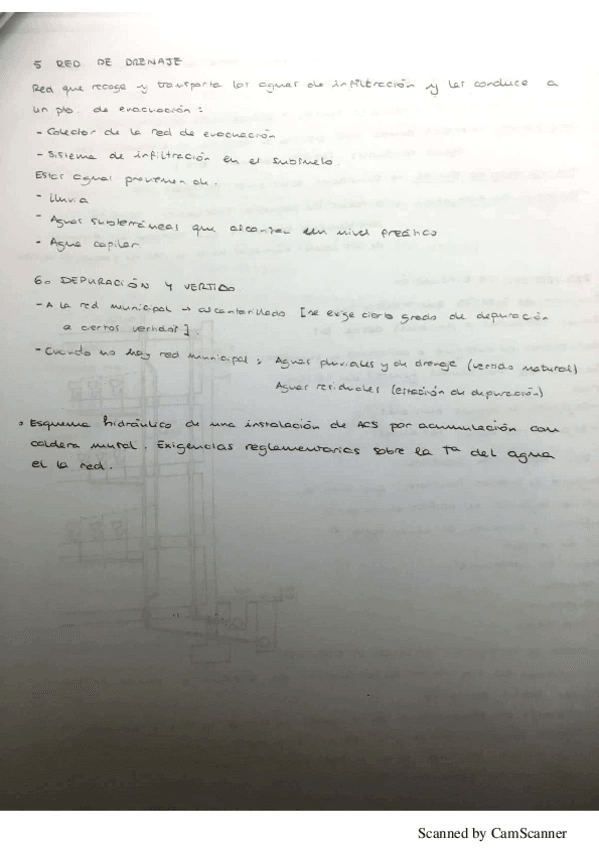 5 RED DE DRENAJE
Red que recoge y transporta las aguas de infiltración y las conduce a
un pto. de evacuación:
- Colector de la red de evacuación
- Sistema de infiltración en el subsuelo.
Estas aguas provienen de:
- Lluvia
- Aguas subterráneas que alcanzan un nivel freático
- Agua capilar
6. DEPURACIÓN Y VERTIDO
- A la red municipal → alcantarillado [se exige cierto grado de depuración
a ciertos vertidos].
- Cuando no hay red municipal; Aguas pluviales y de drenaje (vertido natural)
Aguas residuales (estación de depuración)
Esquema hidráulico de una instalación de ACS por acumulación con
caldera mural. Exigencias reglamentarias sobre la Tª del agua
el la red.
Scanned by CamScanner